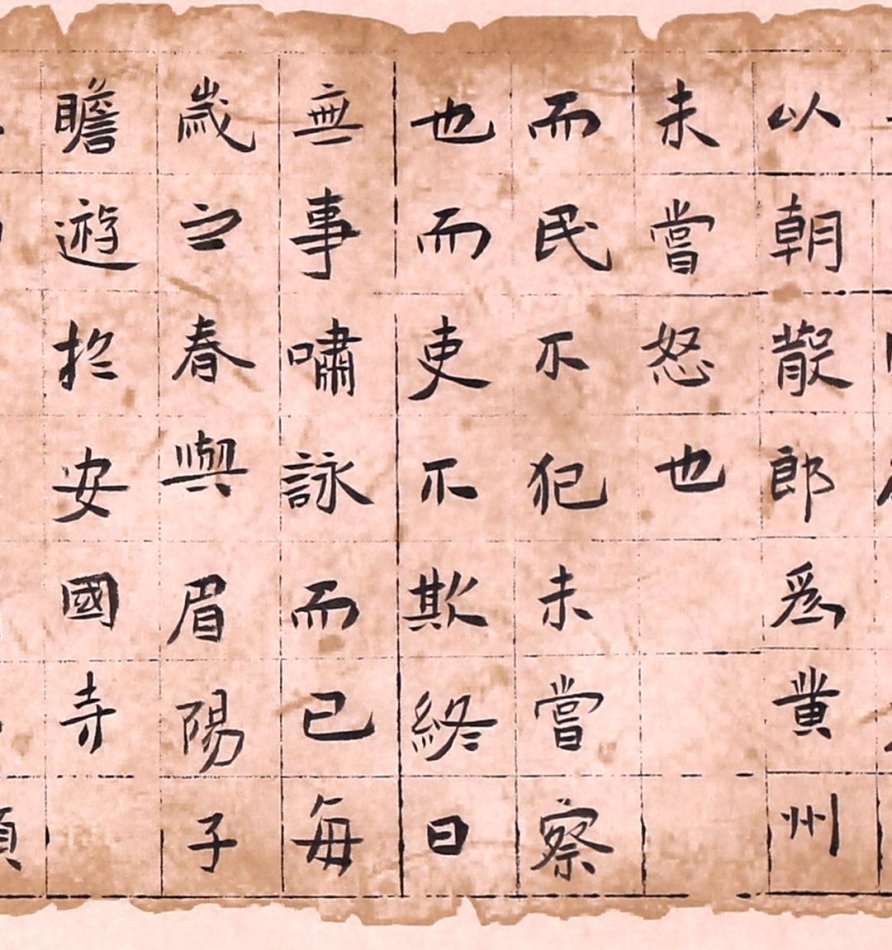 以朝散郎為黄州
未嘗怒也
而民不犯未嘗察
也而吏不欺終日
無事嘯詠而已每
歲之春與眉陽子
瞻遊於安國寺